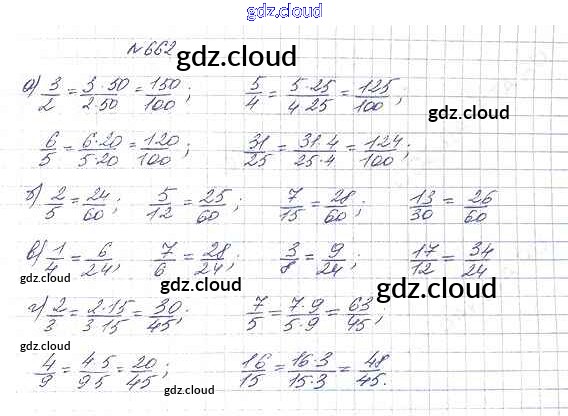 gdz.cloud
№662
gdz.cloud
а) 3/2 = 3·50/2·50 = 150/100; 5/4 = 5·25/4 25 = 125/100;
gdz.cloud
6/5 = 6·20/5·20 = 120/100; 31/25 = 31·4/25·4 = 124/100;
б) 2/5 = 24/60; 5/12 = 25/60; 7/15 = 28/60; 13/30 = 26/60
gdz.cloud gdz.cloud
в) 1/4 = 6/24; 7/6 = 28/24; 3/8 = 9/24; 17/12 = 34/24
gdz.cloud gdz.cloud gdz.cloud
г) 2/3 = 2·15/3 15 = 30/45; 7/5 = 7·9/5·9 = 63/45;
4/9 = 4 5/9 5 = 20/45; 16/15 = 16·3/15·3 = 48/45.
gdz.cloud
gdz.cloud